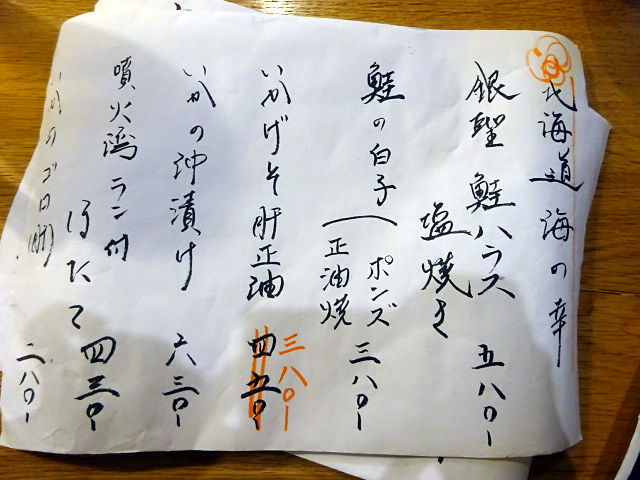 北海道 海の幸
銀聖 鮭ハラス 五八〇ー
塩焼き
鮭の白子 ポンズ 三八〇ー
正油焼
いかげそ肝正油 四五〇ー 三八〇ー
いかの沖漬け 六三〇ー
噴火湾ラン付
ほたて 四三〇ー
いかのゴロ 二八〇ー